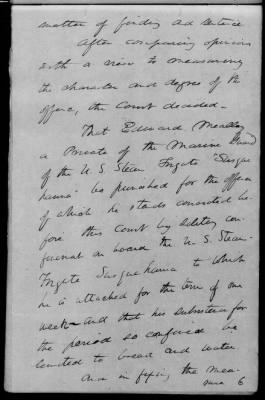 matter of finding and sentence
After comparing opinions
with a view to measuring
the character and degree of the
offence, the Court decided -
That Edward
a Private of the Marine Guard
of the U. S. Steam Frigate "Susque
hanna" be punished for the offence
of which he stands convicted be-
fore this Court by solitary con-
finement on board the U. S. Steam
Frigate Susquehanna to which
he is attached for the term of one
week - and that his subsistence for
the period so confined be
limited to bread and water
And in fixing the mea-
sure 6